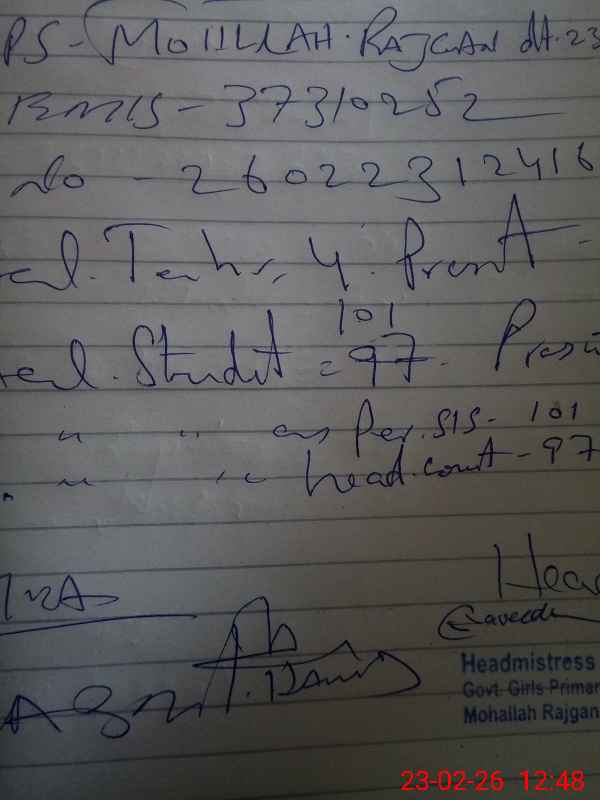 PS - MOHLLAH. RAJGAN dt. 23
EMIS - 37310252
No - 260223312416
Teachrs, 4. Present -
101
Student = 97. Presn
" " as Per. SIS - 101
" " " head. count - 97
Head
Headmistress
Govt. Girls Primar
Mohallah Rajgan
23-02-26 12:48